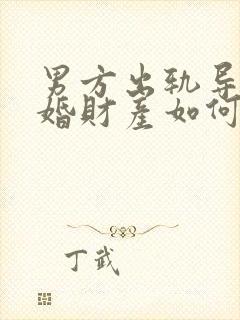 男方出轨导
婚财产如何
丁武